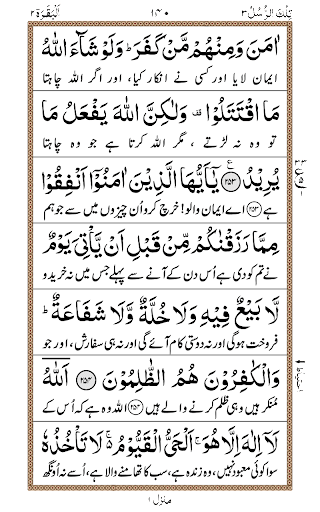 تِلْكَ الرُّسُلُ ٣ ١٤٠ اَلْبَقَرَة ٢
اٰمَنَ وَمِنْهُمْ مَّنْ كَفَرَ ؕ وَلَوْ شَآءَ اللّٰهُ
ایمان لایا اور کسی نے انکار کیا، اور اگر اللہ چاہتا
مَا اقْتَتَلُوْا ۫ وَلٰكِنَّ اللّٰهَ يَفْعَلُ مَا
تو وہ نہ لڑتے ، مگر اللہ کرتا ہے جو وہ چاہتا
يُرِيْدُ ﴿۲۵۳﴾ ع يٰۤاَيُّهَا الَّذِيْنَ اٰمَنُوْۤا اَنْفِقُوْا
ہے ﴿۲۵۳﴾ اے ایمان والو! خرچ کرو اُن چیزوں میں سے جو ہم
مِمَّا رَزَقْنٰكُمْ مِّنْ قَبْلِ اَنْ يَّاْتِيَ يَوْمٌ
نے تم کو دی ہے اُس دن کے آنے سے پہلے جس میں نہ خرید و
لَّا بَيْعٌ فِيْهِ وَلَا خُلَّةٌ وَّلَا شَفَاعَةٌ ؕ
فروخت ہوگی اور نہ دوستی کام آئے گی اور نہ ہی سفارش ، اور جو
وَالْكٰفِرُوْنَ هُمُ الظّٰلِمُوْنَ ﴿۲۵۴﴾ اَللّٰهُ
مُنکر ہیں وہی ظلم کرنے والے ہیں ﴿۲۵۴﴾ اللہ وہ ہے کہ اُس کے
لَاۤ اِلٰهَ اِلَّا هُوَ ۚ اَلْحَيُّ الْقَيُّوْمُ ۚ لَا تَاْخُذُهٗ
سوا کوئی معبود نہیں، وہ زندہ ہے، سب کا تھامنے والا ہے، اُسے نہ اُونگھ
منزل ١